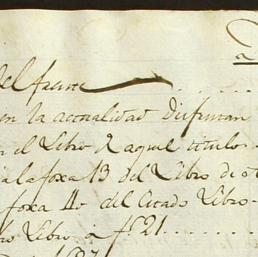 del frente
en la actualidad disfrutan
en el Libro 2 aquel titulo
a la foxa 13 del Libro de
foxa 110 del citado Libro
Libro a f.º 21